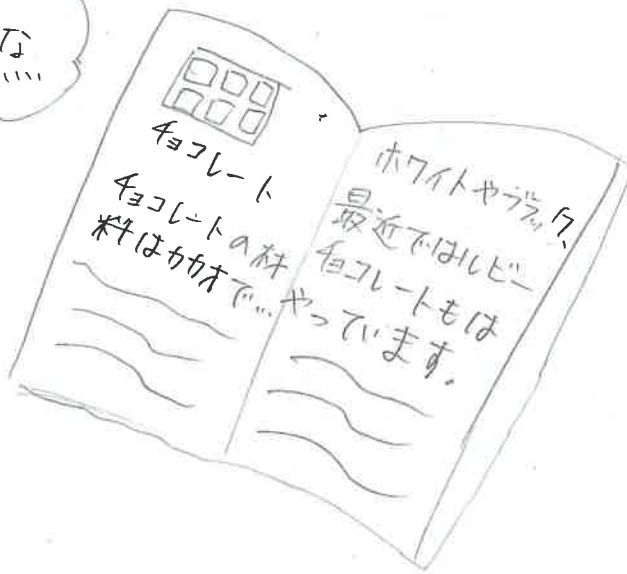 な
チョコレート
チョコレートの材
料はカカオで…
ホワイトやブラック、
最近ではルビー
チョコレートもは
やっています。